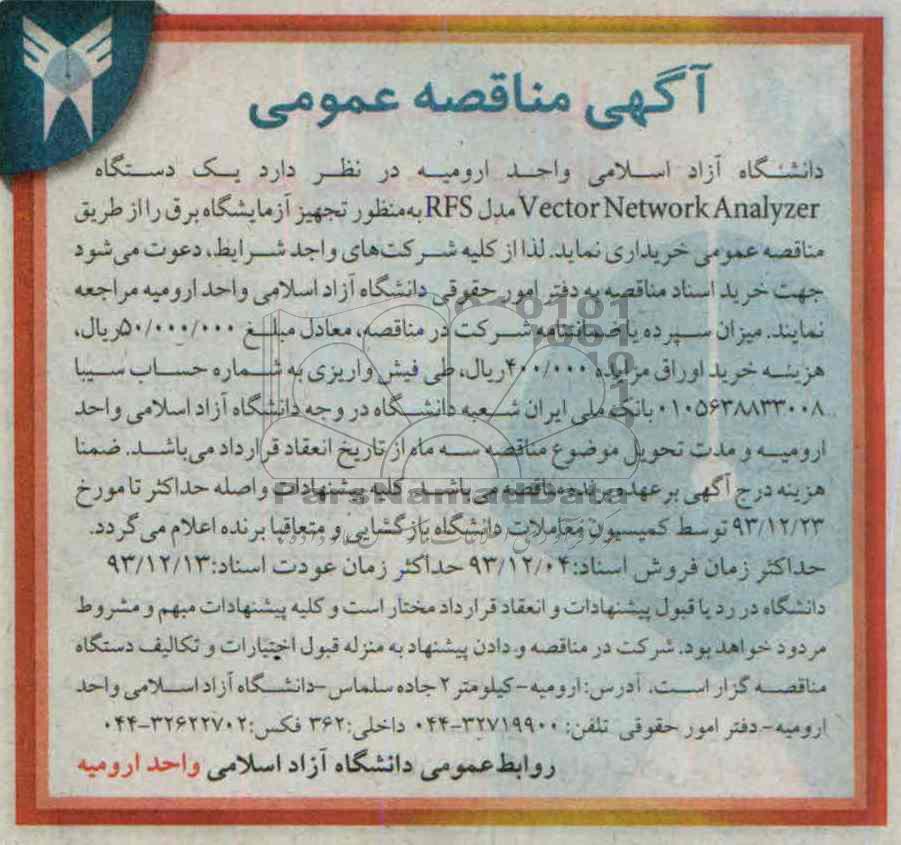 آگهی مناقصه عمومی
دانشگاه آزاد اسلامی واحد ارومیه در نظر دارد یک دستگاه
Vector Network Analyzer مدل RFS به‌منظور تجهیز آزمایشگاه برق را از طریق
مناقصه عمومی خریداری نماید. لذا از کلیه شرکت‌های واجد شرایط، دعوت می‌شود
جهت خرید اسناد مناقصه به دفتر امور حقوقی دانشگاه آزاد اسلامی واحد ارومیه مراجعه
نمایند. میزان سپرده یا ضمانتنامه شرکت در مناقصه، معادل مبلغ ۵۰/۰۰۰/۰۰۰ریال،
هزینه خرید اوراق مزایده ۴۰۰/۰۰۰ریال، طی فیش واریزی به شماره حساب سیبا
۰۱۰۵۶۳۸۸۳۳۰۰۸ بانک ملی ایران شعبه دانشگاه در وجه دانشگاه آزاد اسلامی واحد
ارومیه و مدت تحویل موضوع مناقصه سه ماه از تاریخ انعقاد قرارداد می‌باشد. ضمنا
هزینه درج آگهی برعهده برنده مناقصه می باشد. کلیه پیشنهادات واصله حداکثر تا مورخ
۹۳/۱۲/۲۳ توسط کمیسیون معاملات دانشگاه بازگشایی و متعاقبا برنده اعلام می گردد.
حداکثر زمان فروش اسناد:۹۳/۱۲/۰۴ حداکثر زمان عودت اسناد:۹۳/۱۲/۱۳
دانشگاه در رد یا قبول پیشنهادات و انعقاد قرارداد مختار است و کلیه پیشنهادات مبهم و مشروط
مردود خواهد بود. شرکت در مناقصه و دادن پیشنهاد به منزله قبول اختیارات و تکالیف دستگاه
مناقصه گزار است. آدرس: ارومیه-کیلومتر ۲ جاده سلماس-دانشگاه آزاد اسلامی واحد
ارومیه-دفتر امور حقوقی تلفن: ۳۲۷۱۹۹۰۰-۰۴۴ داخلی:۳۶۲ فکس:۳۲۶۲۲۷۰۲-۰۴۴
روابط عمومی دانشگاه آزاد اسلامی واحد ارومیه
ParsNamadData